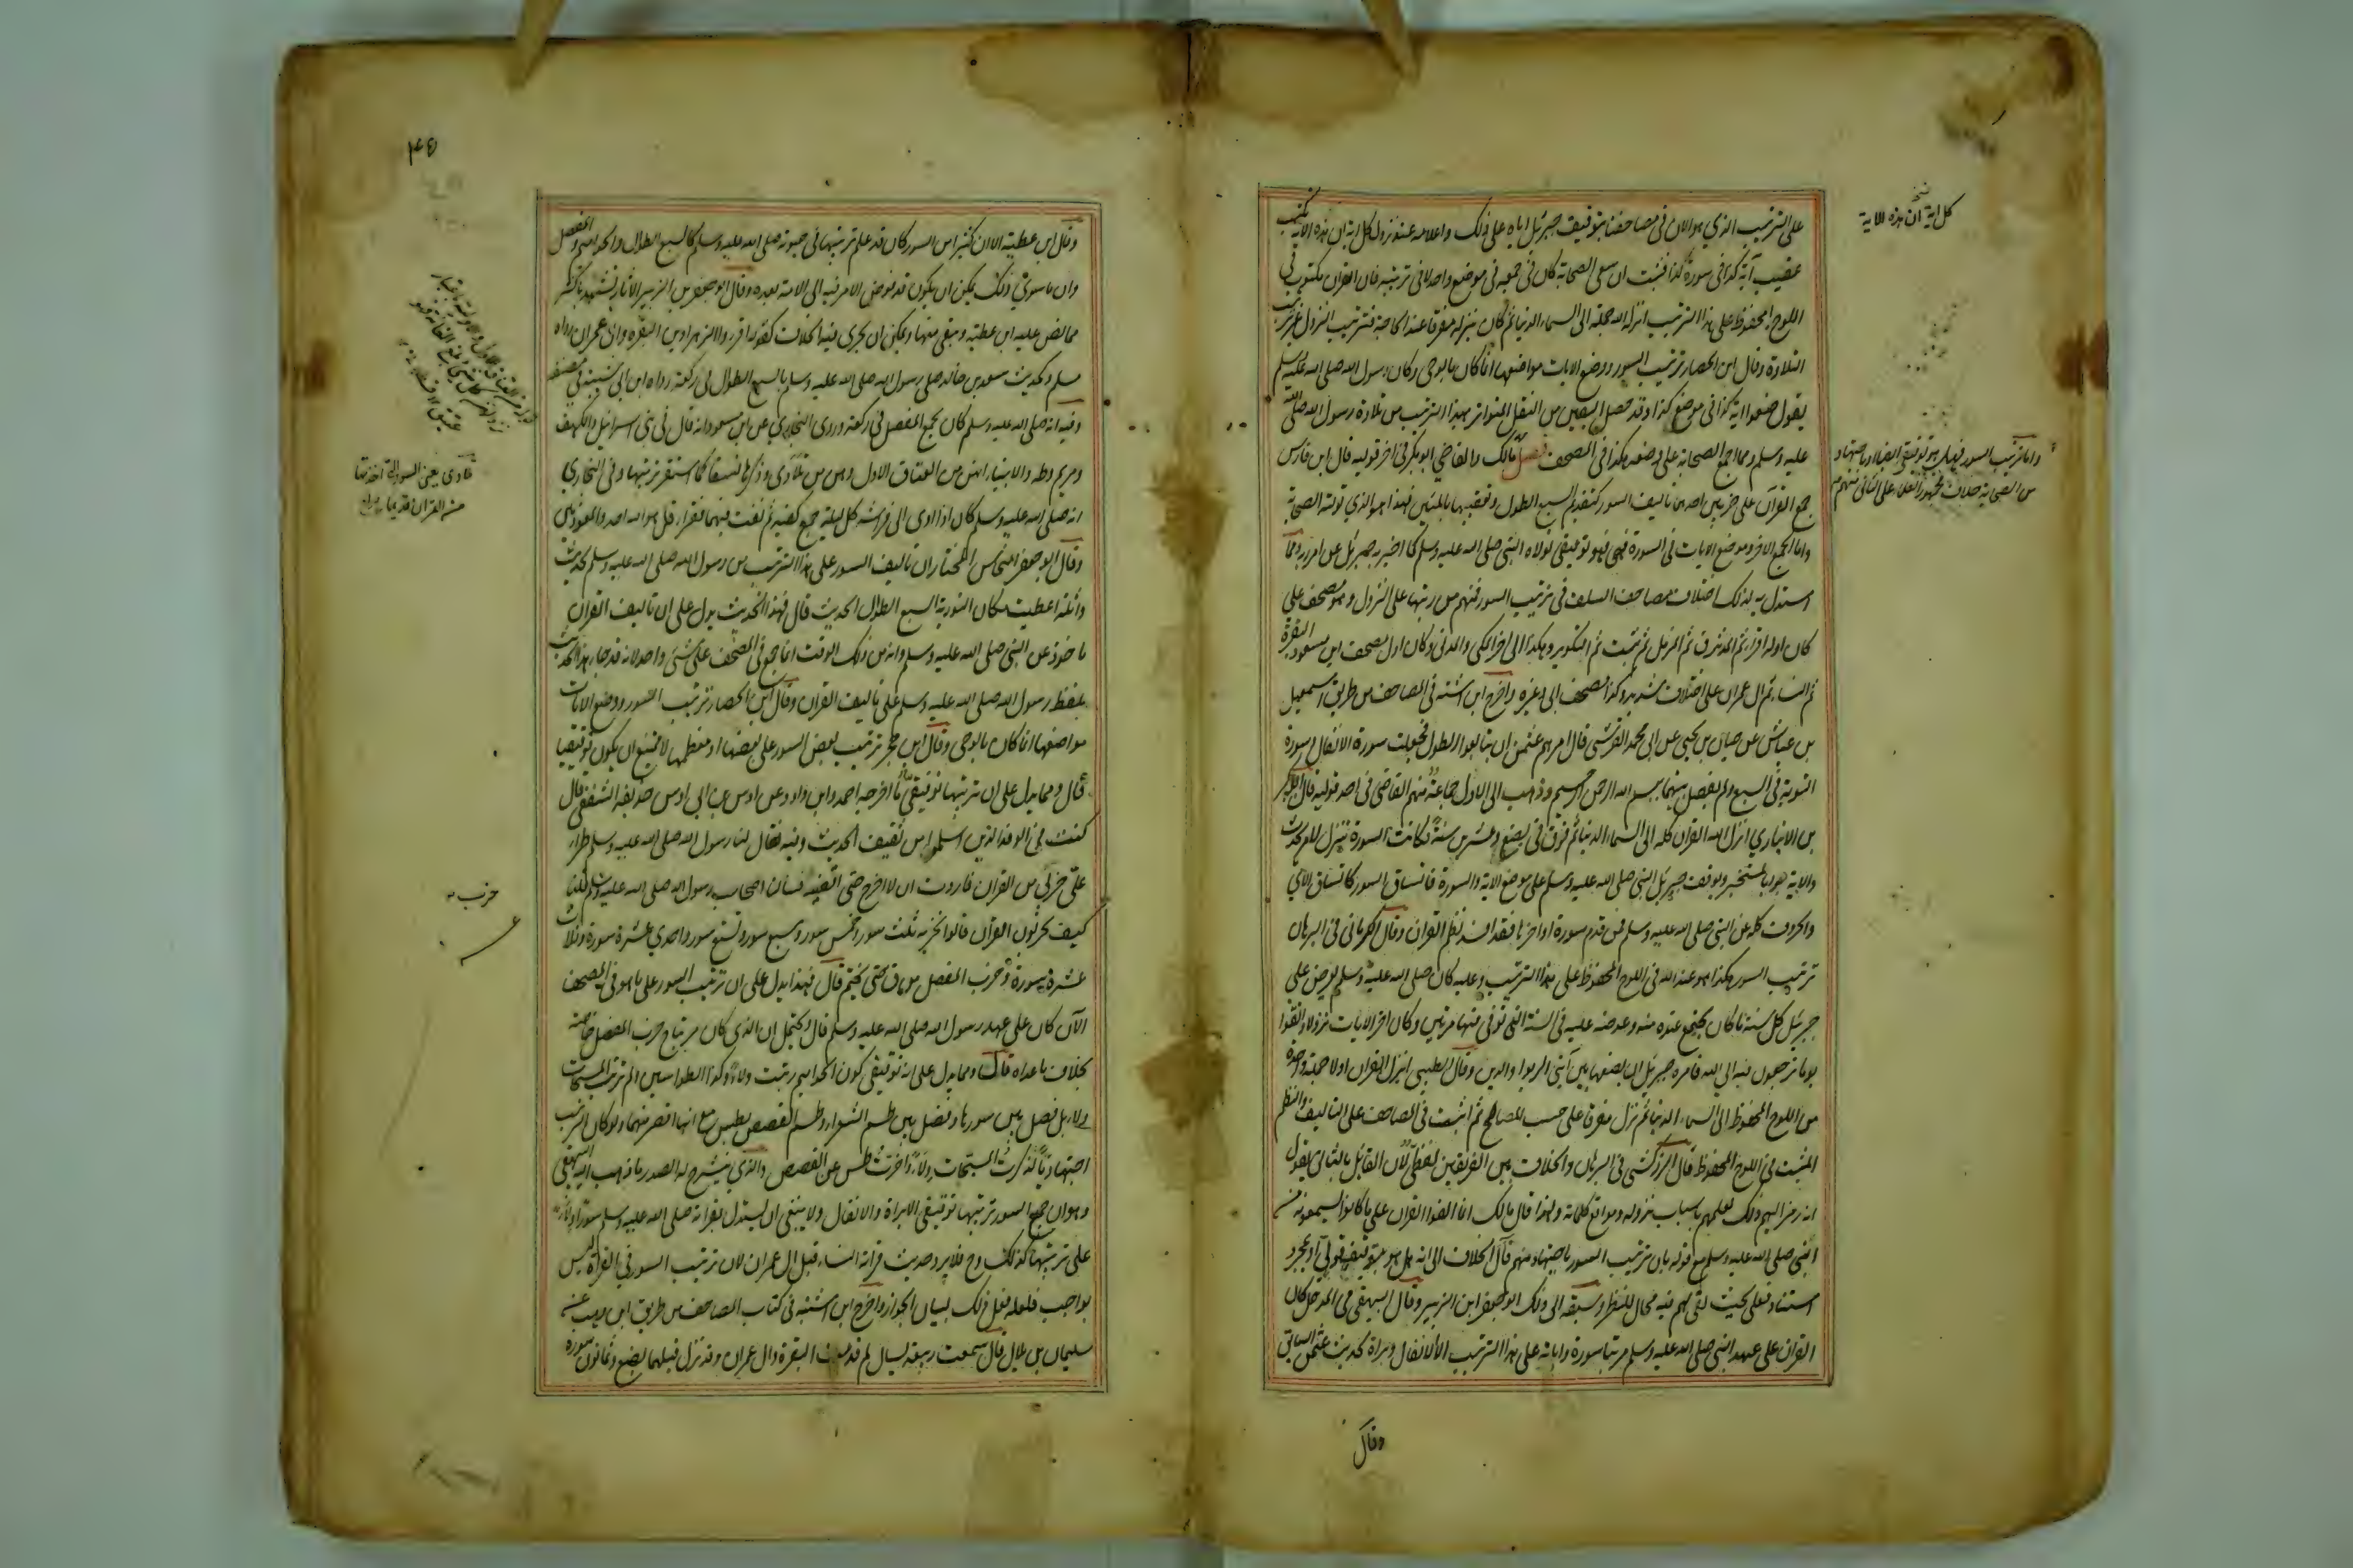 على الترتيب الذي هو الان في مصاحفنا بتوقيف جبرئيل اياه على ذلك واعلامه عند نزول كل اية ان هذه الاية تكتب
عقيب آية كذا في سورة كذا فثبت ان سعى الصحابة كان في جمعه في موضع واحد لا في ترتيبه فان القران مكتوب في
اللوح المحفوظ على هذا الترتيب انزله الله جملة الى السماء الدنيا ثم كان ينزله مفرقا عند الحاجة فترتيب النزول غير ترتيب
التلاوة وقال ابن الحصار ترتيب السور ووضع الايات مواضعها انما كان بالوحي وكان رسول الله صلى الله عليه وسلم
يقول ضعوا اية كذا في موضع كذا وقد حصل اليقين من النقل المتواتر بهذا الترتيب من تلاوة رسول الله صلى الله
عليه وسلم ومما اجمع الصحابة على وضعه هكذا في المصحف فصل مالك والقاضي ابو بكر في اخر قوليه قال ابن فارس
جمع القرآن على ضربين احدهما تاليف السور كتقديم السبع الطول وتعقيبها بالمئين فهذا هو الذي تولته الصحابة
واما الجمع الاخر وهو وضع الايات في السورة فهي فهو توقيفي تولاه النبي صلى الله عليه وسلم كما اخبر به جبرئيل عن امر ربه ومما
استدل به لذلك اختلاف مصاحف السلف في ترتيب السور فمنهم من رتبها على النزول وهو مصحف علي
كان اوله اقرا ثم المدثر ثم ق ثم المزمل ثم تبت ثم التكوير وهكذا الى اخر المكي والمدني وكان اول مصحف ابن مسعود البقرة
ثم النساء ثم ال عمران على اختلاف شديد وكذا مصحف ابي وغيره واخرج ابن اشتة في المصاحف من طريق اسمعيل
بن عباش عن حبان بن يحيى عن ابي محمد القرشي قال امرهم عثمن ان يتابعوا الطول فجعلت سورة الانفال وسورة
التوبة في السبع ولم يفصل بينهما ببسم الله الرحمن الرحيم وذهب الى الاول جماعة منهم القاضي في احد قوليه قال ابو بكر
بن الانباري انزل الله القران كله الى السماء الدنيا ثم فرق في بضع وعشرين سنة فكانت السورة تنزل لامر يحدث
والاية جوابا لمستخبر ويوقف جبرئيل النبي صلى الله عليه وسلم على موضع الاية والسورة فاتساق السور كاتساق الآي
والحروف كله عن النبي صلى الله عليه وسلم فمن قدم سورة او اخرها فقد افسد نظم القرآن وقال الكرماني في البرهان
ترتيب السور هكذا هو عند الله في اللوح المحفوظ على هذا الترتيب وعليه كان صلى الله عليه وسلم يعرض على
جبرئيل كل سنة ما كان يجتمع عنده منه وعرضه عليه في السنة التي توفي فيها مرتين وكان اخر الايات نزولا واتقوا
يوما ترجعون فيه الى الله فامره جبرئيل ان يضعها بين آيتي الربوا والدين وقال الطيبي انزل القران اولا جملة واحدة
من اللوح المحفوظ الى السماء الدنيا ثم نزل مفرقا على حسب المصالح ثم اثبت في المصاحف على التاليف والنظم
المثبت في اللوح المحفوظ قال الزركشي في البرهان والخلاف بين الفريقين لفظي لان القائل بالثاني يقول
انه رمز اليهم ذلك لعلمهم باسباب نزوله ومواقع كلماته ولهذا قال مالك انما الفوا القرآن على ما كانوا يسمعونه من
النبي صلى الله عليه وسلم مع قوله بان ترتيب السور باجتهاد منهم فآل الخلاف الى انه هل هو بتوقيف قولي او بمجرد
استناد فعلي بحيث بقي لهم فيه مجال للنظر وسبقه الى ذلك ابو جعفر ابن الزبير وقال البيهقي في المدخل كان
القران على عهد النبي صلى الله عليه وسلم مرتبا سوره واياته على هذا الترتيب الا الانفال وبراة لحديث عثمن السابق
وقال
كل اية ان هذه الاية
واما ترتيب السور فهل هو توقيفي ايضا او باجتهاد
من الصحابة خلاف فجمهور العلماء على الثاني منهم
وقال ابن عطية الا ان كثيرا من السور كان قد علم ترتيبها في حيوته صلى الله عليه وسلم كالسبع الطوال والحواميم والمفصل
وان ما سوى ذلك يمكن ان يكون قد فوض الامر فيه الى الامة بعده وقال ابو جعفر بن الزبير الآثار تشهد باكثر
مما نص عليه ابن عطية ويبقى منها ويمكن ان يجري فيه الخلاف كقوله اقروا الزهراوين البقرة وال عمران رواه
مسلم وكحديث سعيد بن خالد صلى رسول الله صلى الله عليه وسلم بالسبع الطوال في ركعة رواه ابن ابي شيبة في مصنفه
وفيه انه صلى الله عليه وسلم كان يجمع المفصل في ركعة وروى البخاري عن ابن مسعود انه قال في بني اسرائيل والكهف
ومريم وطه والانبياء انهن من العتاق الاول وهن من تلادي وذكرها نسقا كما استقر ترتيبها وفي البخاري
انه صلى الله عليه وسلم كان اذا اوى الى فراشه كل ليلة جمع كفيه ثم نفث فيهما فقرا قل هو الله احد والمعوذتين
وقال ابو جعفر النحاس المختار ان تاليف السور على هذا الترتيب من رسول الله صلى الله عليه وسلم لحديث
واثلة اعطيت مكان التورية السبع الطوال الحديث قال فهذا الحديث يدل على ان تاليف القران
ماخوذ عن النبي صلى الله عليه وسلم وانه من ذلك الوقت انما جمع في المصحف على شئ واحد لانه قد جاء هذا الحديث
بلفظ رسول الله صلى الله عليه وسلم على تاليف القران وقال ابن الحصار ترتيب السور ووضع الايات
مواضعها انما كان بالوحي وقال ابن حجر ترتيب بعض السور على بعضها او معظمها لا يمتنع ان يكون توقيفيا
قال ومما يدل على ان ترتيبها توقيفي ما اخرجه احمد وابو داود عن اوس بن ابي اوس حذيفة الثقفي قال
كنت في الوفد الذين اسلموا من ثقيف الحديث وفيه فقال لنا رسول الله صلى الله عليه وسلم طرا
علي حزبي من القران فاردت ان لا اخرج حتى اقضيه فسالنا اصحاب رسول الله صلى الله عليه وسلم قلنا
كيف تحزبون القرآن قالوا نحزبه ثلث سور وخمس سور وسبع سور وتسع سور واحدي عشرة سورة وثلاث
عشرة سورة وحزب المفصل من ق حتى نختم قال فهذا يدل على ان ترتيب السور على ما هو في المصحف
الآن كان على عهد رسول الله صلى الله عليه وسلم قال ويحتمل ان الذي كان مرتبا ح حزب المفصل خاصة
بخلاف ما عداه قلت ومما يدل على انه توقيفي كون الحواميم رتبت ولاء وكذا الطواسين ولم ترتب المسبحات
ولاء بل فصل بين سورها وفصل بين طسم الشعراء وطسم القصص بطس مع انها اقصر منهما ولو كان الترتيب
اجتهاديا لذكرت المسبحات ولاء واخرت طس عن القصص والذي ينشرح له الصدر ما ذهب اليه البيهقي
وهو ان جميع السور ترتيبها توقيفي الا براة والانفال ولا ينبغي ان يستدل بقراته صلى الله عليه وسلم سورا ولاء
على ترتيبها كذلك وح فلا يرد حديث قراته النساء قبل ال عمران لان ترتيب السور في القراة ليس
بواجب فلعله فعل ذلك لبيان الجواز واخرج ابن اشتة في كتاب المصاحف من طريق ابن وهب عن
سليمان بن بلال قال سمعت ربيعة يسال لم قدمت البقرة وال عمران وقد نزل قبلهما بضع وثمانون سورة
تلادي يعني السور التي اخذتها
من القران قديما
حزب